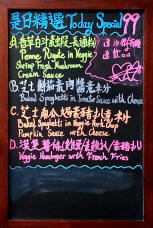 是日精選 Today Special 99
A.香草白汁素蝦長通粉
Penne Rigate in Veggie
Shrimp Fresh Mushroom
Cream Sauce
B.芝士鮮茄素肉醬意粉
Baked Spaghetti in Tomato Sauce with Cheese
C.芝士南瓜奶素豬扒意粉
Baked Spaghetti in Veggie Pork Chop
Pumpkin Sauce with Cheese
D.漢堡薯條
Veggie Hamburger with French Fries